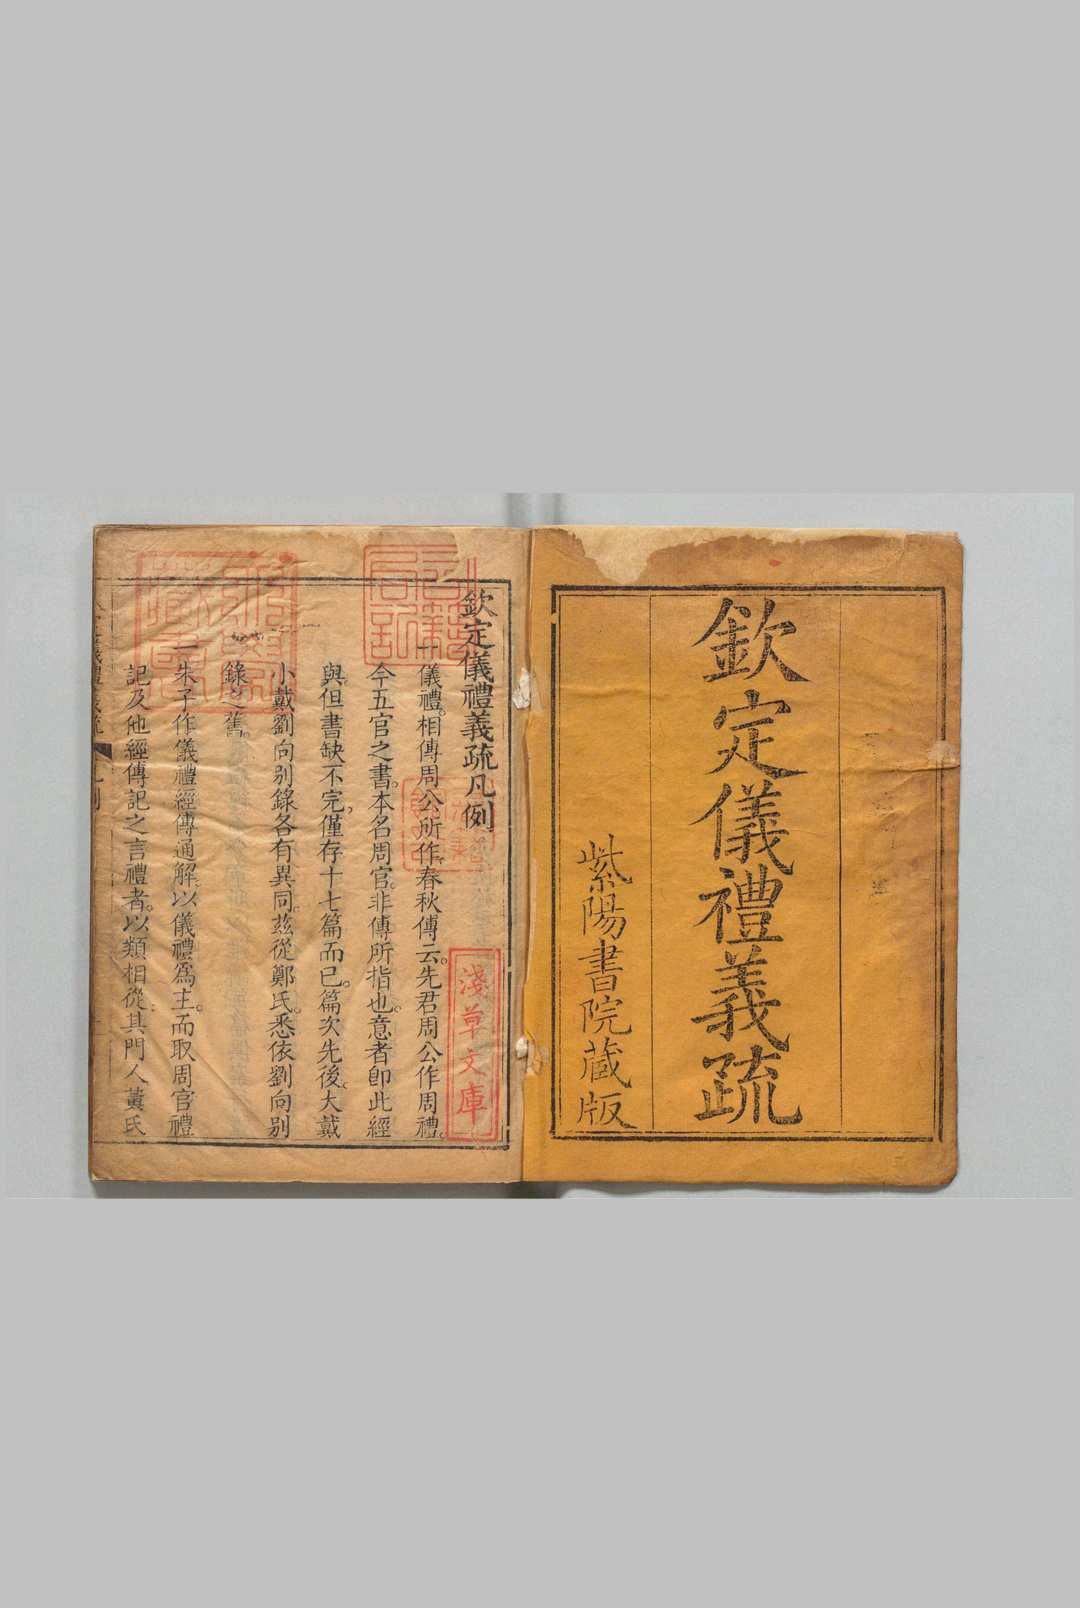 欽定儀禮義疏
紫陽書院蔵版
欽定儀禮義疏凡例
一儀禮。相傳周公所作。春秋傳云。先君周公作周禮。
今五官之書。本名周官。非傳所指也。意者卽此經
與。但書缺不完。僅存十七篇而已。篇次先後。大戴
小戴劉向别錄各有異同。兹從鄭氏。悉依劉向别
錄之舊。
一朱子作儀禮經傳通解。以儀禮爲主。而取周官禮
記及他經傳記之言禮者。以類相從。其門人黃氏
淺草文庫